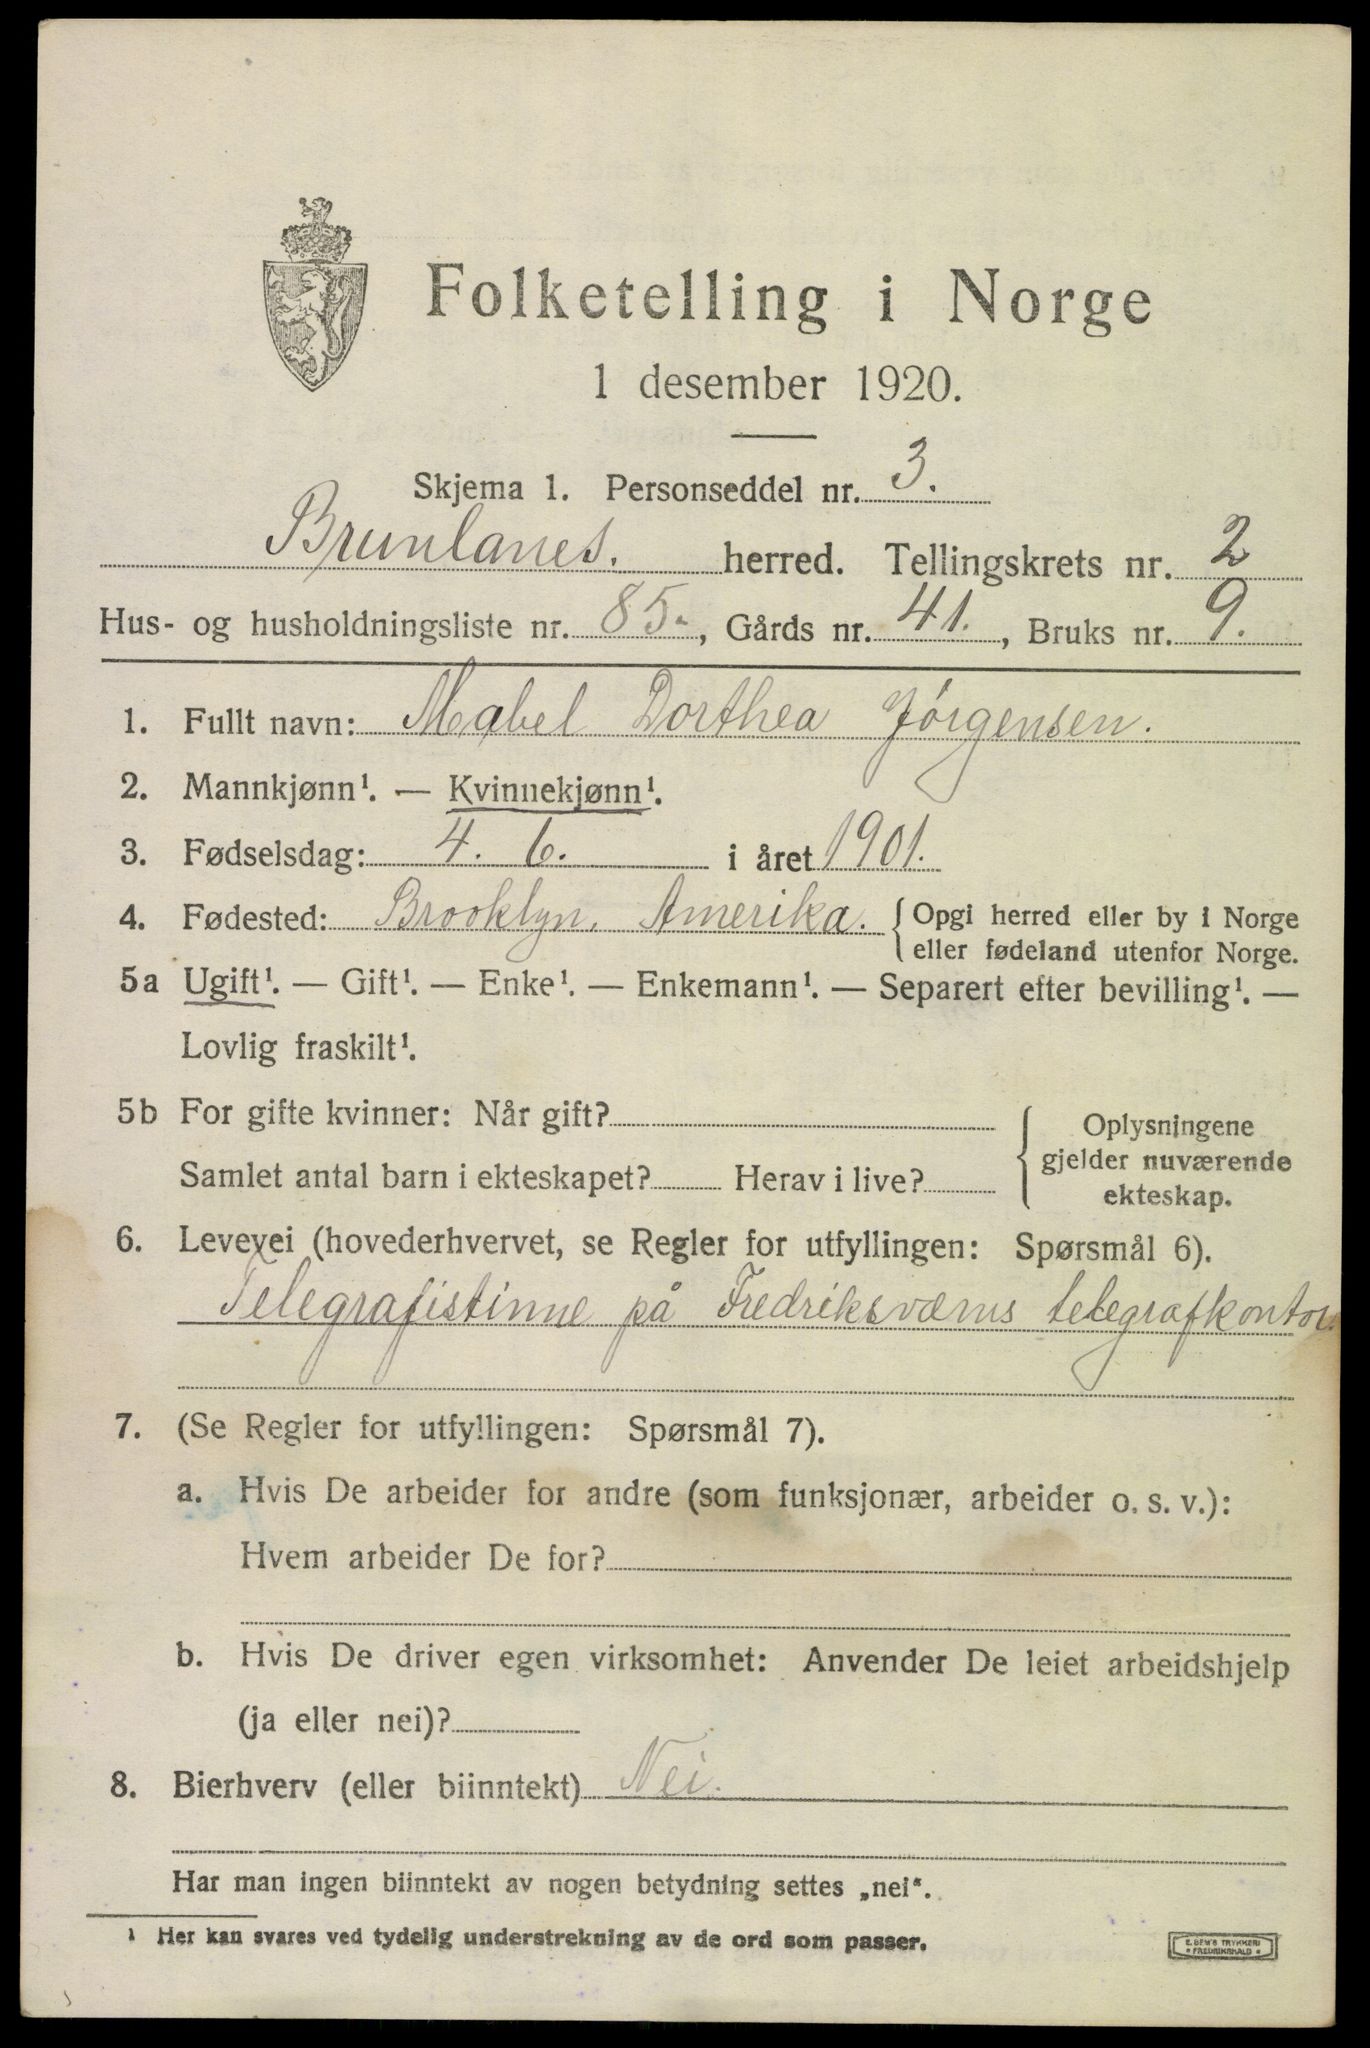 Folketelling i Norge
1 desember 1920.
Skjema 1. Personseddel nr. 3.
Brunlanes. herred. Tellingskrets nr. 2
Hus- og husholdningsliste nr. 85., Gårds nr. 41., Bruks nr. 9.
1. Fullt navn: Mabel Dorthea Jörgensen.
2. Mannkjønn¹. — Kvinnekjønn¹.
3. Fødselsdag: 4. 6. i året 1901.
4. Fødested: Brooklyn. Amerika. { Opgi herred eller by i Norge
eller fødeland utenfor Norge.
5a Ugift¹. — Gift¹. — Enke¹. — Enkemann¹. — Separert efter bevilling¹. —
Lovlig fraskilt¹.
5b For gifte kvinner: Når gift?
Samlet antal barn i ekteskapet? Herav i live?
{ Oplysningene
gjelder nuværende
ekteskap.
6. Levevei (hovederhvervet, se Regler for utfyllingen: Spørsmål 6).
Telegrafistinne på Fredriksværns telegrafkontor.
7. (Se Regler for utfyllingen: Spørsmål 7).
a. Hvis De arbeider for andre (som funksjonær, arbeider o. s. v.):
Hvem arbeider De for?
b. Hvis De driver egen virksomhet: Anvender De leiet arbeidshjelp
(ja eller nei)?
8. Bierhverv (eller biinntekt) Nei.
Har man ingen biinntekt av nogen betydning settes „nei“.
¹ Her kan svares ved tydelig understrekning av de ord som passer.
E. SEM'S TRYKKERI
• FREDRIKSHALD •